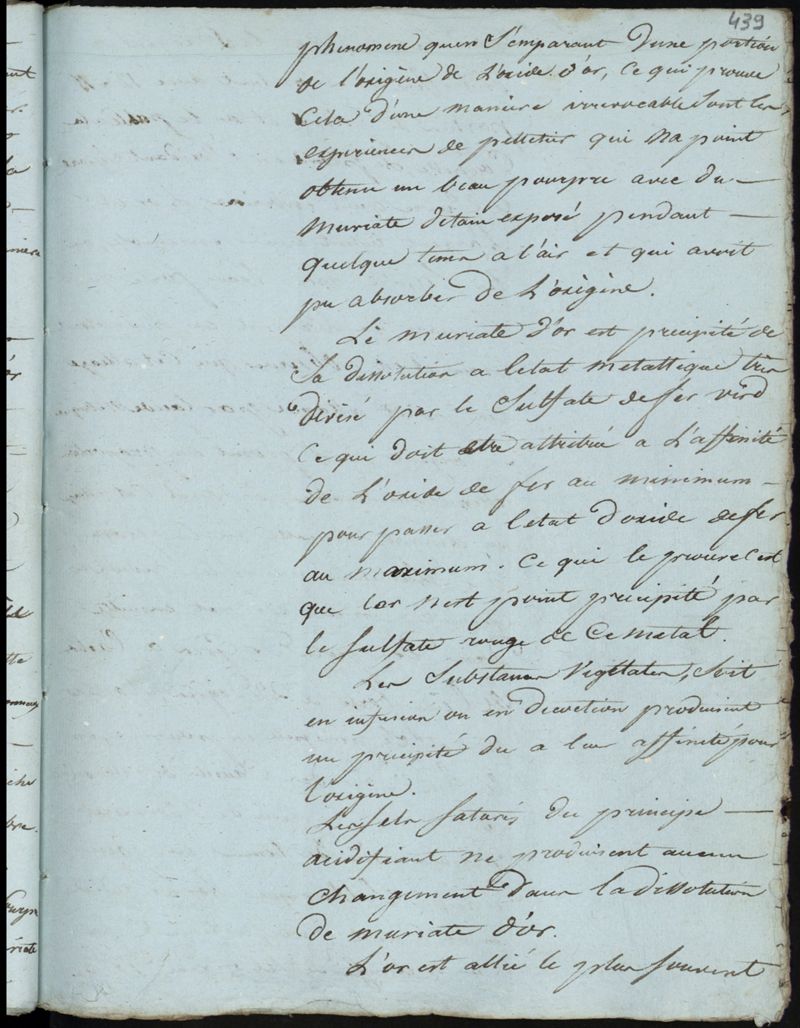 439
phenomene quen S'emparant d'une portion
de l'oxigène de L'oxide d'or, ce qui prouve
Cela d'une manière irrevocable Sont les
experiences de pelletier qui N'a point
obtenu un beau pourpre avec du —
Muriate d'etain exposé pendant —
quelque tems a l'air et qui avoit
pu absorber de L'oxigène.
Le muriate d'or est precipité de
Sa dissolution a letat metallique très
divisé par le Sulfate de fer verd
Ce qui doit etre attribué a L'affinité
de L'oxide de fer au minimum —
pour passer a letat d'oxide de fer
au maximum. Ce qui le prouve C'est
que lor n'est point precipité par
le Sulfate rouge de Ce metal.
Les Substances Vegetales, Soit
en infusion ou en decoction produisent
un precipité du a leur affinité pour
l'oxigène.
Les Sels Saturés du principe —
acidifiant ne produisent aucun
changement dans la dissolution
de muriate d'or.
L'or est allié le plus Souvent